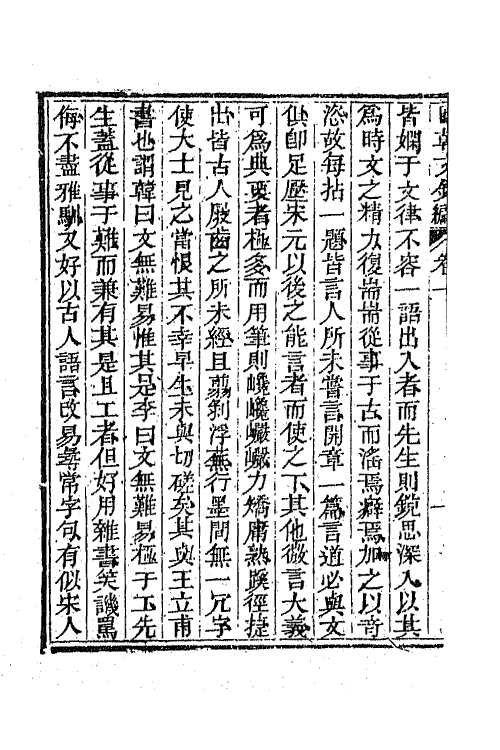 國朝文錄續編 卷一
皆嫻于文律不容一語出入者而先生則鏡思深入以其
爲時文之精力復耑耑從事于古而滛焉癖焉加之以奇
恣故每拈一題皆言人所未嘗言開章一篇言道必與文
俱卽足壓宋元以後之能言者而使之下其他微言大義
可爲典要者極多而用筆則巉巉巖巖力矯庸熟蹊徑捷
出皆古人殷齒之所未經且剪剝浮蕪行墨間無一冗字
使大士見之當恨其不幸早生未與切磋矣其與王立甫
書也謂韓曰文無難易惟其是李曰文無難易極于工先
生蓋從事于難而兼有其是且工者但好用雜書笑譏罵
侮不盡雅馴又好以古人語言改易尋常字句有似宋人